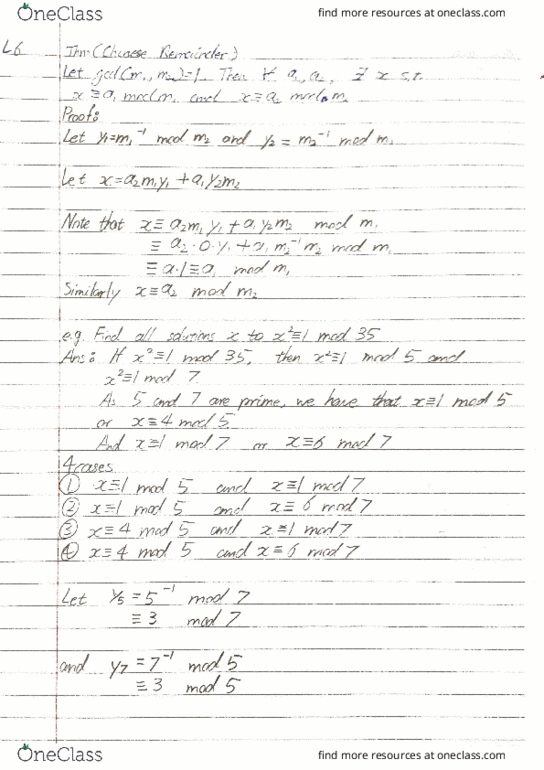 OneClass find more resources at oneclass.com
L6 Thm (Chinese Remainder)
Let gcd(m₁, m₂)=1. Then ∀ a₁, a₂, ∃ x s.t.
x ≡ a₁ mod m₁ and x ≡ a₂ mod m₂
Proof:
Let y₁=m₁⁻¹ mod m₂ and y₂ = m₂⁻¹ mod m₁
Let x=a₂m₁y₁ + a₁y₂m₂
Note that x ≡ a₂m₁y₁ + a₁y₂m₂ mod m₁
≡ a₂·0·y₁ + a₁ m₂⁻¹ m₂ mod m₁
≡ a₁·1 ≡ a₁ mod m₁
Similarly x ≡ a₂ mod m₂
e.g. Find all solutions x to x²≡1 mod 35
Ans: If x²≡1 mod 35, then x²≡1 mod 5 and
x²≡1 mod 7.
As 5 and 7 are prime, we have that x≡1 mod 5
or x≡4 mod 5.
And x≡1 mod 7 or x≡6 mod 7
4 cases
① x≡1 mod 5 and x≡1 mod 7
② x≡1 mod 5 and x≡6 mod 7
③ x≡4 mod 5 and x≡1 mod 7
④ x≡4 mod 5 and x≡6 mod 7
Let y₅ = 5⁻¹ mod 7
≡ 3 mod 7
and y₇ = 7⁻¹ mod 5
≡ 3 mod 5
OneClass find more resources at oneclass.com